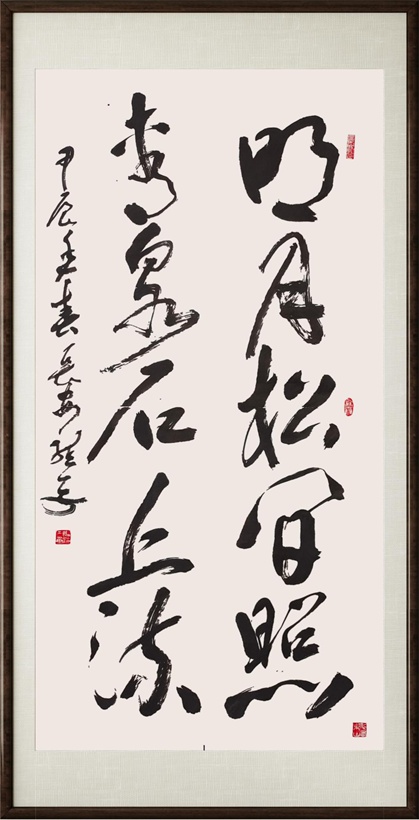 明月松间照
清泉石上流
甲辰年春长安